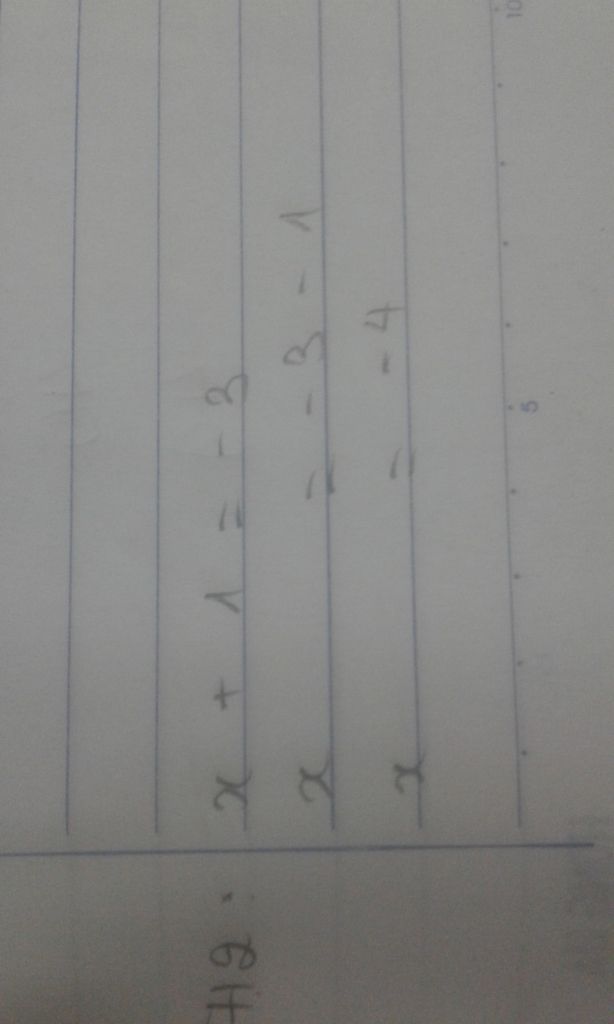 TH2: x + 1 = - 3
x = - 3 - 1
x = - 4
5 10